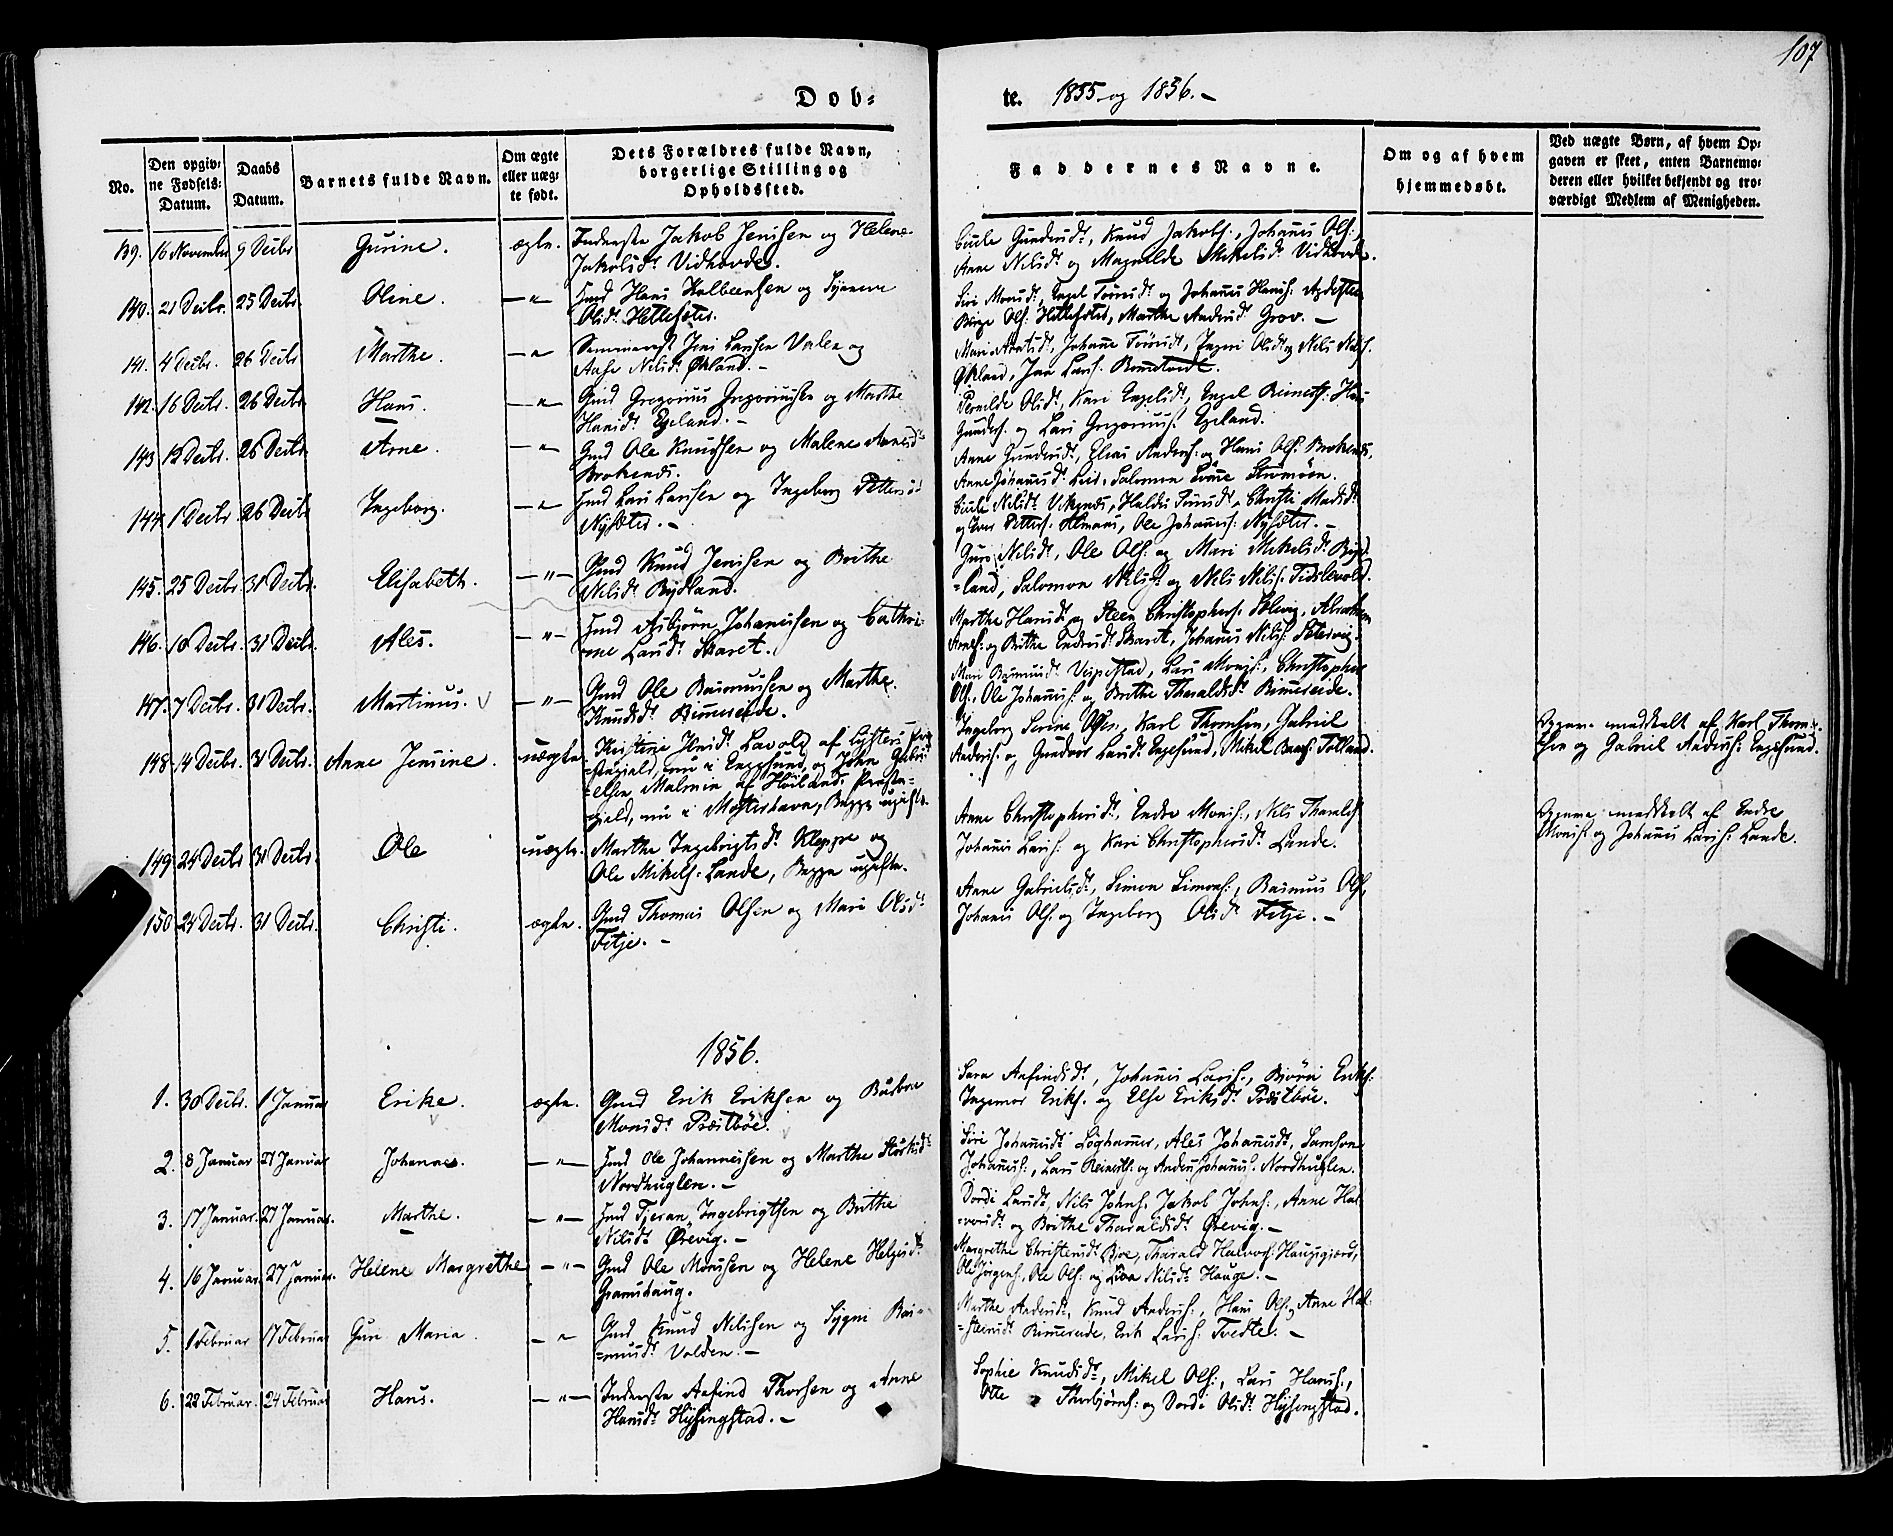 107
Dob- te. 1855 og 1856.-
No.
Den opgiv-
ne Fødsels-
Datum.
Daabs
Datum.
Barnets fulde Navn.
Om ægte
eller uæg-
te født.
Dets Forældres fulde Navn,
borgerlige Stilling og
Opholdssted.
Faddernes Navne.
Om og af hvem
hjemmedøbt.
Ved uægte Børn, af hvem Op-
gaven er skeet, enten Barnemo-
deren eller hvilket bekjendt og tro-
værdigt Medlem af Menigheden.
139. 16 November 9 Decbr Gurine. ægte. Inderste Jakob Jensen og Helene
Jakobsdr Vidhovde.
Gundersdr, Knud Jakobs:, Johannes Ols:,
Anne Nilsdr og Magnilde Mikelsdr Vidhovde.
140. 21 Decbr. 25 Decbr. Oline. -"- Gmd Hans
Olsdr Hettesæter.
Siri Monsdr, Engel Tørrisdr og Johannes Hans:
Børge Ols: Hettesæter, Marthe Andersdr Grov. -
141. 4 Decbr. 26 Decbr Marthe. -"- Jens Larsen Valen og
Aase Nilsdr Økland. -
Johanne Tørrisdr, Ingeri Olsdr og Nils Nils:
Økland, Lars:
142. 16 Decbr. 26 Decbr Hans. -"- Gmd Gregorius Gregoriussen og Marthe
Hansdr Egeland. -
Pernilde Olsdr, Kari Engelsdr, Engel Reinerts:
Gunders: og Lars Gregorius: Egeland.
143 12 Decbr. 26 Decbr. Arne. -"- Gmd Ole Knudsen og Malene Arnesdr
Brokenes.
Anne Gundersdr, Elias Anders: og Hans Ols: Brokenes,
Anne Johannesdr Salomon
144. 1 Decbr. 26 Decbr Ingeborg. -"- Gmd Lars Larsen og Ingeborg Pettersdr
Nysæter. -
Nilsdr Haldis Tørrisdr, Christi Madsdr
og Iver Petters: Ole Johannes: Nysæter. -
145. 25 Decbr. 31 Decbr. Elisabeth. -"- Gmd Knud Jensen og Brithe
Nilsdr Rydland.
Guro Nilsdr, Ole Ols: og Mari Mikelsdr Ryd-
=land, Salomon Nils: og Nils Nils: Tidslevold.
146. 10 Decbr. 31 Decbr. Ales. -"- Gmd Asbjørn Johannessen og Cathri-
ne Larsdr Skaret.
Marthe Hansdr og Steen Christophers:
og Brithe Endresdr Skaret, Johannes Nils:
147. 7 Decbr. 31 Decbr. Martinus. -"- Gmd Ole Rasmussen og Marthe
Knudsdr Rimereide.
Mari Rasmusdr Vespestad, Lars Mons:, Christopher
Ols:, Ole Johannes: og Brithe Tharaldsdr Rimereide.
148 14 Decbr. 31 Decbr. Anne Jensine. uægte Kristine af Lysters Præ-
stegjeld, nu i Engesund, og John Gabri-
elsen Malmin af Høilands Præste-
gjeld, nu i Mosterhavn, Begge ugifte.
Ingeborg Serine Karl Thomsen, Gabriel
Anders: og Gundvor Larsdr Engesund, Mikel
meddelt af Karl Thom-
sen og Gabriel Anders: Engesund.
149 24 Decbr 31 Decbr. Ole uægte. Marthe Ingebrigtsdr Kleppe og
Ole Mikels: Lande, Begge ugifte.
Anne Christophersdr, Endre Mons:, Nils Tharalds:
Johannes Lars: og Kari Christophersdr Lande.
meddelt af Endre
Mons: og Johannes Lars: Lande.
150 24 Decbr. 31 Decbr. Christi. ægte. Gmd Thomas Olsen og Mari Olsdr
Fitje. -
Anne Gabrielsdr, Simon Simons:, Rasmus Ols:,
Johannes Ols: og Ingeborg Olsdr Fitje. -
1856.
1. 30 Decbr. 1 Januar Erike. ægte. Gmd Erik Eriksen og Barbro
Monsdr Præstbøe.
Sara Johannes Lars:, Bjørn Eriks:
Ingemor Eriks: og Else Eriksdr Præstbøe.
2. 8 Januar 21 Januar Johannes. -"- Gmd Ole Johannessen og Marthe Størksdr
Nordhuglen. -
Siri Johannesdr Løghammer, Ales Johannesdr, Samson
Johannes:, Lars Reinerts: og Anders Johannes: Nordhuglen.
3. 17 Januar. 27 Januar. Marthe. -"- Gmd Tjeran Ingebrigtsen og Brithe
Nilsdr Ørevig. -
Dordi Larsdr, Nils Johns: Jakob Johns:, Anne Hal-
=vorsdr og Brithe Tharaldsdr Ørevig. -
4. 16 Januar. 27 Januar. Helene Margrethe -"- Gmd Ole Monssen og Helene Helgesdr
Gramshaug.
Margrethe Christensdr Boe, Tharald Halvors: Hauggjerd,
Ole Jørgens:, Ole Ols: og Nilsdr Hauge. -
5. 1 Februar 17 Februar Guri Maria. -"- Gmd Knud Nilssen og Sygni Ras-
=musdr Valden. -
Marthe Andersdr, Knud Anders:, Hans Ols:, Anne Hal-
=steinsdr Rimereide, Erik Lars: Tvedte. -
6. 22 Februar. 24 Februar Hans. -"- Inderste Aafind Thorsen og Anne
Hansdr Hysingstad. -
Sophie Knudsdr, Mikel Ols:, Lars Hans:,
Otte Thorbjørns: og Dordi Olsdr Hysingstad.